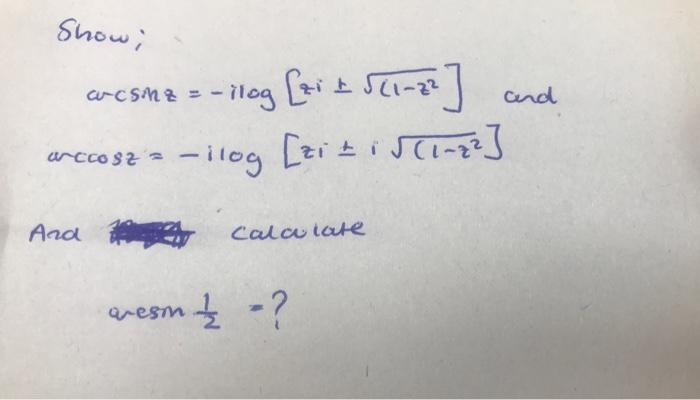 Show;
arcsinz = -ilog [zi ± √(1-z²] and
arccosz = -ilog [zi ± i √(1-z²]
And calculate
arcsin 1/2 = ?